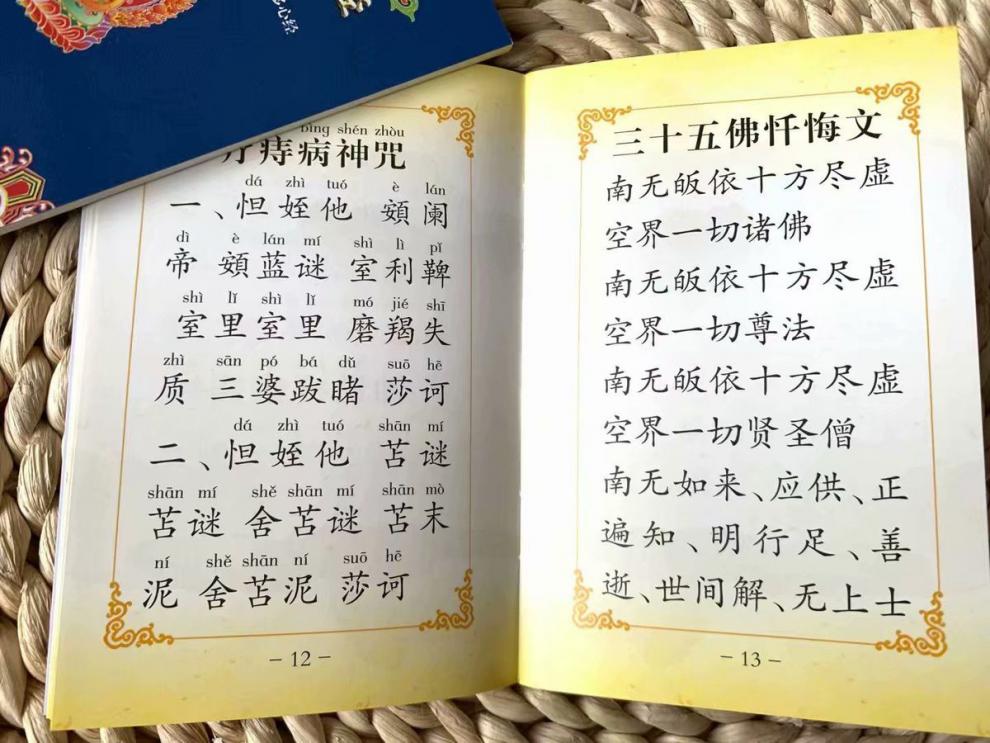 心经
bìng shén zhòu
疗痔病神咒
dá zhì tuó è lán
一、怛姪他 頞阑
dì è lán mí shì lì pǐ
帝 頞蓝谜 室利鞞
shì lǐ shì lǐ mó jié shī
室里室里 磨羯失
zhì sān pó bá dǔ suō hē
质 三婆跋睹 莎诃
dá zhì tuó shān mí
二、怛姪他 苫谜
shān mí shě shān mí shān mò
苫谜 舍苫谜 苫末
ní shě shān ní suō hē
泥 舍苫泥 莎诃
－12－
三十五佛忏悔文
南无皈依十方尽虚
空界一切诸佛
南无皈依十方尽虚
空界一切尊法
南无皈依十方尽虚
空界一切贤圣僧
南无如来、应供、正
遍知、明行足、善
逝、世间解、无上士
－13－